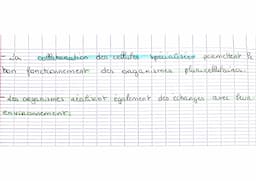 - La collaboration des cellules spécialisées permettent le
bon fonctionnement des organismes pluricellulaires.
- Les organismes réalisent également des échanges avec leur
environnement.